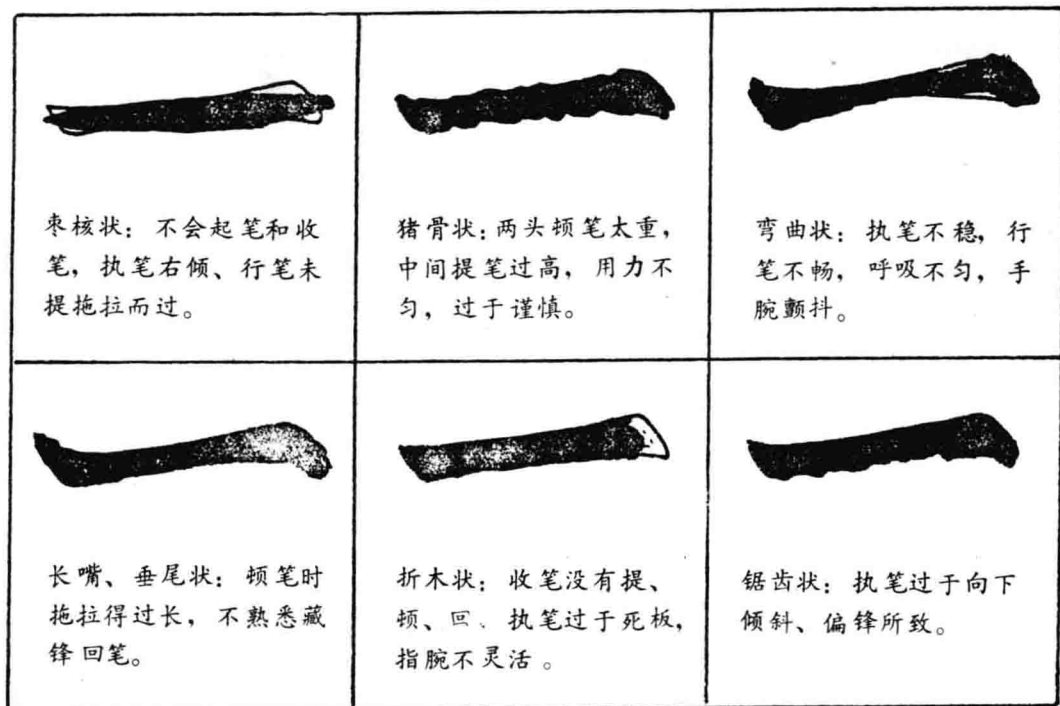 枣核状：不会起笔和收
笔，执笔右倾、行笔未
提拖拉而过。
猪骨状：两头顿笔太重，
中间提笔过高，用力不
匀，过于谨慎。
弯曲状：执笔不稳，行
笔不畅，呼吸不匀，手
腕颤抖。
长嘴、垂尾状：顿笔时
拖拉得过长，不熟悉藏
锋回笔。
折木状：收笔没有提、
顿、回、执笔过于死板，
指腕不灵活。
锯齿状：执笔过于向下
倾斜、偏锋所致。